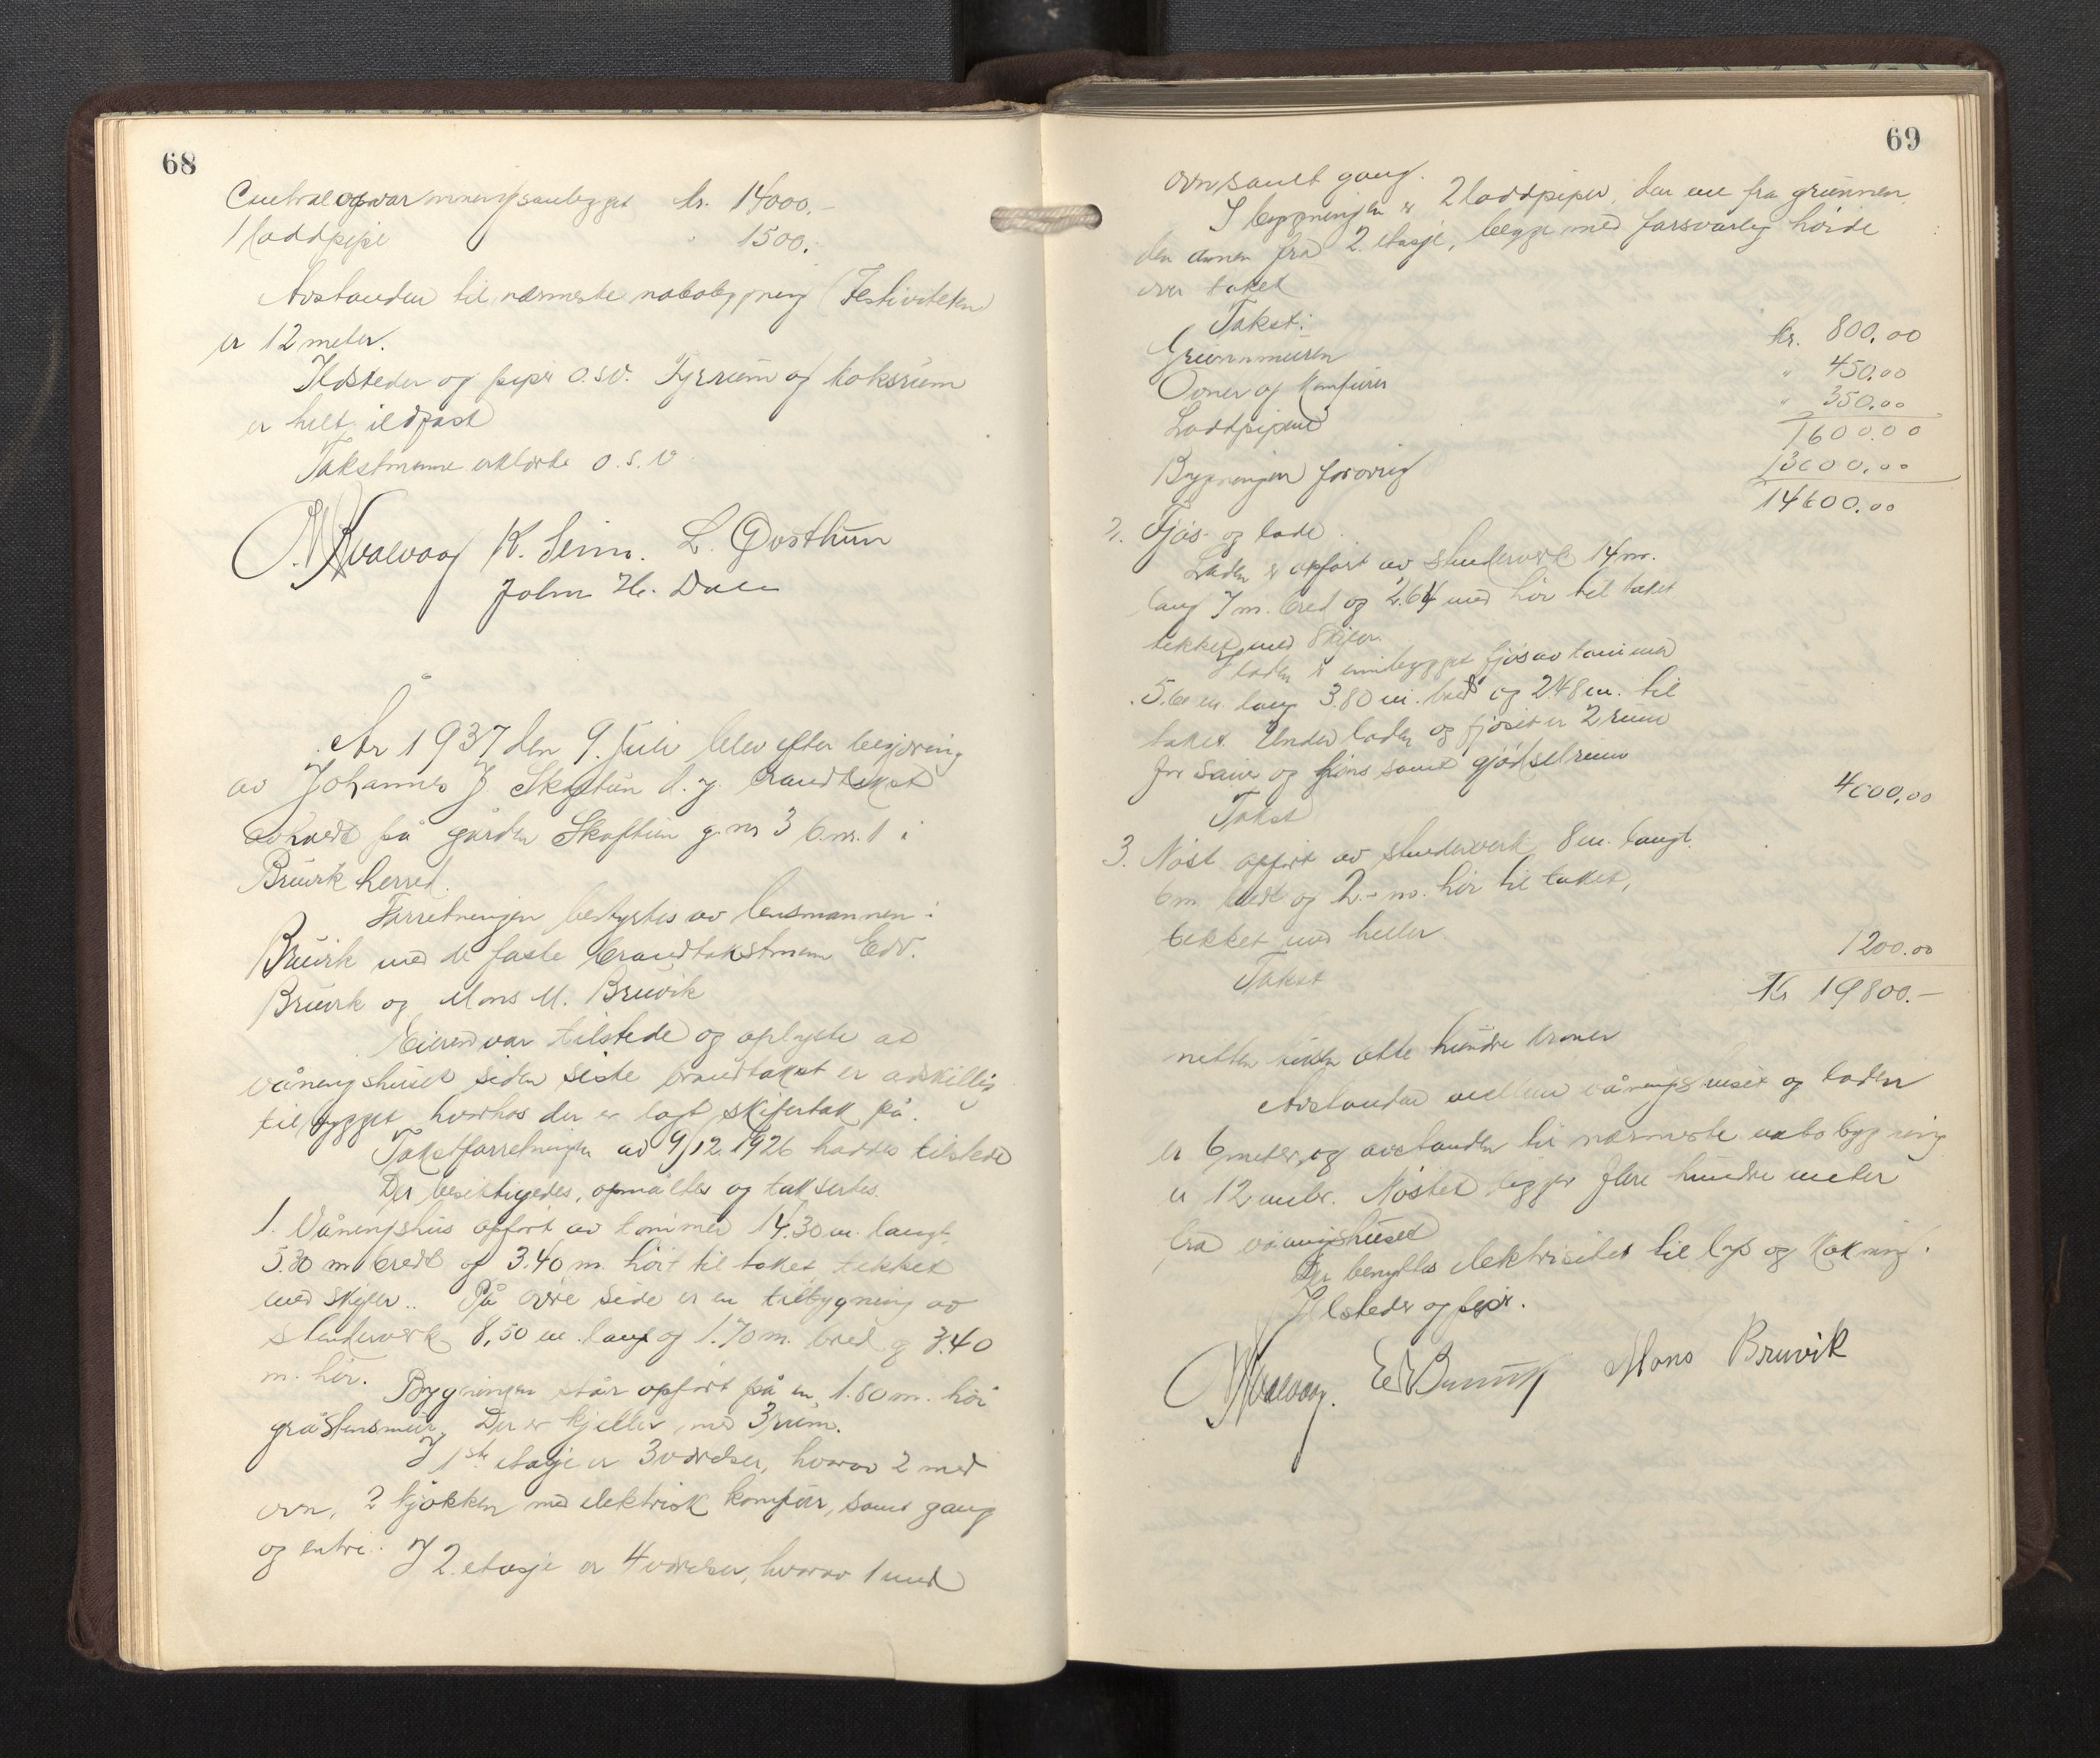 68
Centralopvarmningsanlegget kr. 14000.-
1 loddpipe " 1500.-
Avstanden til nærmeste nabobygning (Festiviteten)
er 12 meter.
Ildsteder og piper o.s.v. Fyrrum og koksrum
er helt ildfast
Takstmenne erklærte o.s.v.
Kvalvaag K. Seim. L. Øvsthun
John H. Dale
År 1937 den 9. juli blev efter begjæring
av Johannes J. Skaftun d.y. brandtakst
avholdt på gården Skaftun g.nr 3 b.nr. 1 i
Bruvik herred.
Forretningen bestyrtes av lensmannen i
Bruvik med de faste brandtakstmenn Edv.
Bruvik og Mons M. Bruvik
Eieren var tilstede og oplyste at
våningshuset siden siste brandtakst er adskillig
tilbygget hvorhos der er lagt skifertak på.
Takstforretningen av 9/12 1926 haddes tilstede
Der besiktigedes, opmåltes og taksertes.
1. Våningshus opført av tømmer 14.30 m. langt,
5.30 m bredt og 3.40 m. høit til taket tekket
med skifer. På øvre side er en tilbygning av
stenderverk 8,50 m. lang og 1.70 m. bred og 3.40
m. høi. Bygningen står opført på en 1.80 m. høi
gråstensmur. Der er kjeller med 3 rum.
I 1ste etasje er 3 værelser, hvorav 2 med
ovn, 2 kjøkken med elektrisk komfur, samt gang
og entre. I 2. etasje er 4 værelser, hvorav 1 med
69
ovn samt gang.
I bygningen er 2 loddpiper, den ene fra grunnen,
den annen fra 2. etasje, begge med forsvarlig høide
over taket
Takst:
Grunnmuren kr. 800.00
Ovner og komfurer " 450.00
Loddpipene " 350.00
1600.00
Bygningen forøvrig 13000.00
14600.00
2. Fjøs- og lade.
Laden er opført av stenderverk 14 m.
lang 7 m. bred og 2.64 med høi til taket
tekket med skifer.
I laden er innbygget fjøs av tømmer
5.60 m. lang 3.80 m. bred og 2.48 m. til
taket. Under laden og fjøset er 2 rum
for sauer og høns samt gjødselrum
Takst 4000,00
3. Nøst opført av stenderverk 8 m. langt
6 m. bredt og 2.- m. høi til taket,
tekket med heller.
Takst 1200.00
Kr 19800.-
nitten tusen otte hundre kroner
Avstanden mellem våningshuset og laden
er 6 meter og avstanden til nærmeste nabobygning
er 12 meter. Nøstet ligger flere hundre meter
fra våningshuset
Der benyttes elektrisitet til lys og kokning.
Ildsteder og piper.
Kvalvaag. Edv Bruvik Mons Bruvik